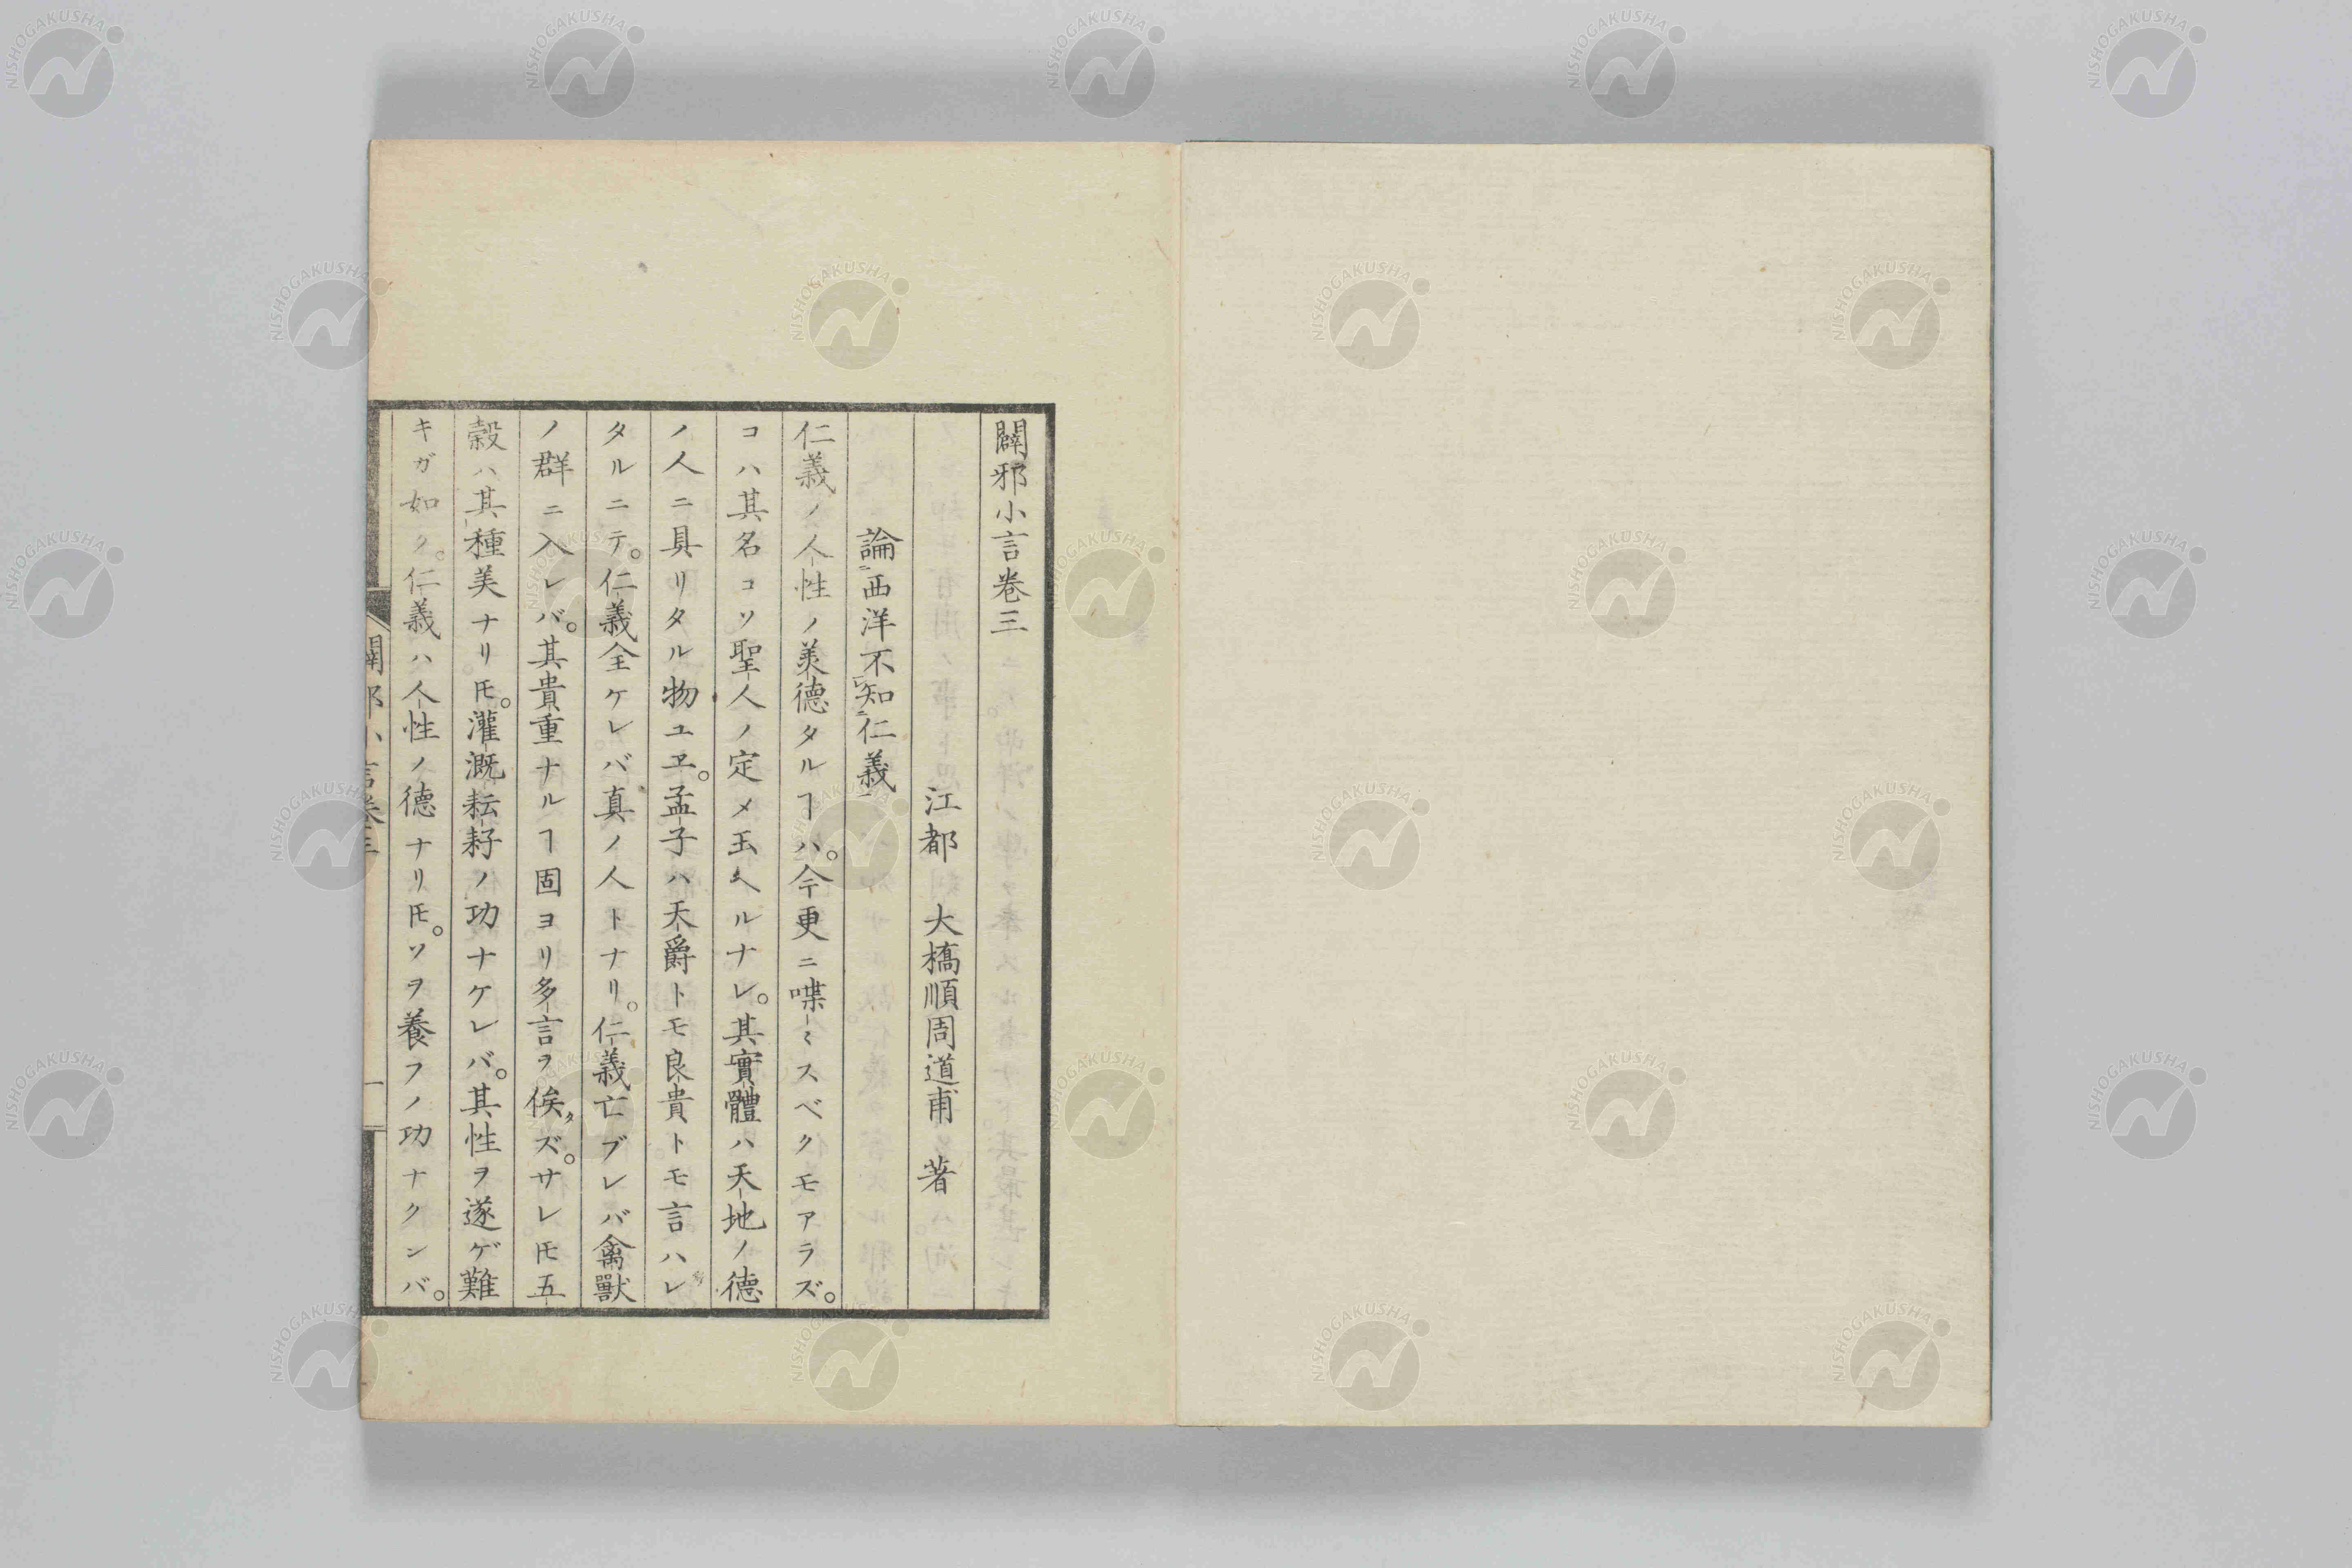 闢邪小言卷三
江都 大橋順周道甫 著
論西洋不知仁義
仁義ノ人性ノ美德タルヿハ。今更ニ喋〻スベクモアラズ。
コハ其名コソ聖人ノ定メ玉ヘルナレ。其實體ハ天地ノ德
ノ人ニ具リタル物ユヱ。孟子ハ天爵トモ良貴トモ言ハレ
タルニテ。仁義全ケレバ真ノ人トナリ。仁義亡ブレバ禽獸
ノ群ニ入レバ。其貴重ナルヿ固ヨリ多言ヲ俟タズ。サレ𪜈五
穀ハ其種美ナリ𪜈。灌溉耘耔ノ功ナケレバ。其性ヲ遂ゲ難
キガ如ク。仁義ハ人性ノ德ナリ𪜈。ソヲ養フノ功ナクンバ。
闢邪小言卷三 一
NISHOGAKUSHA